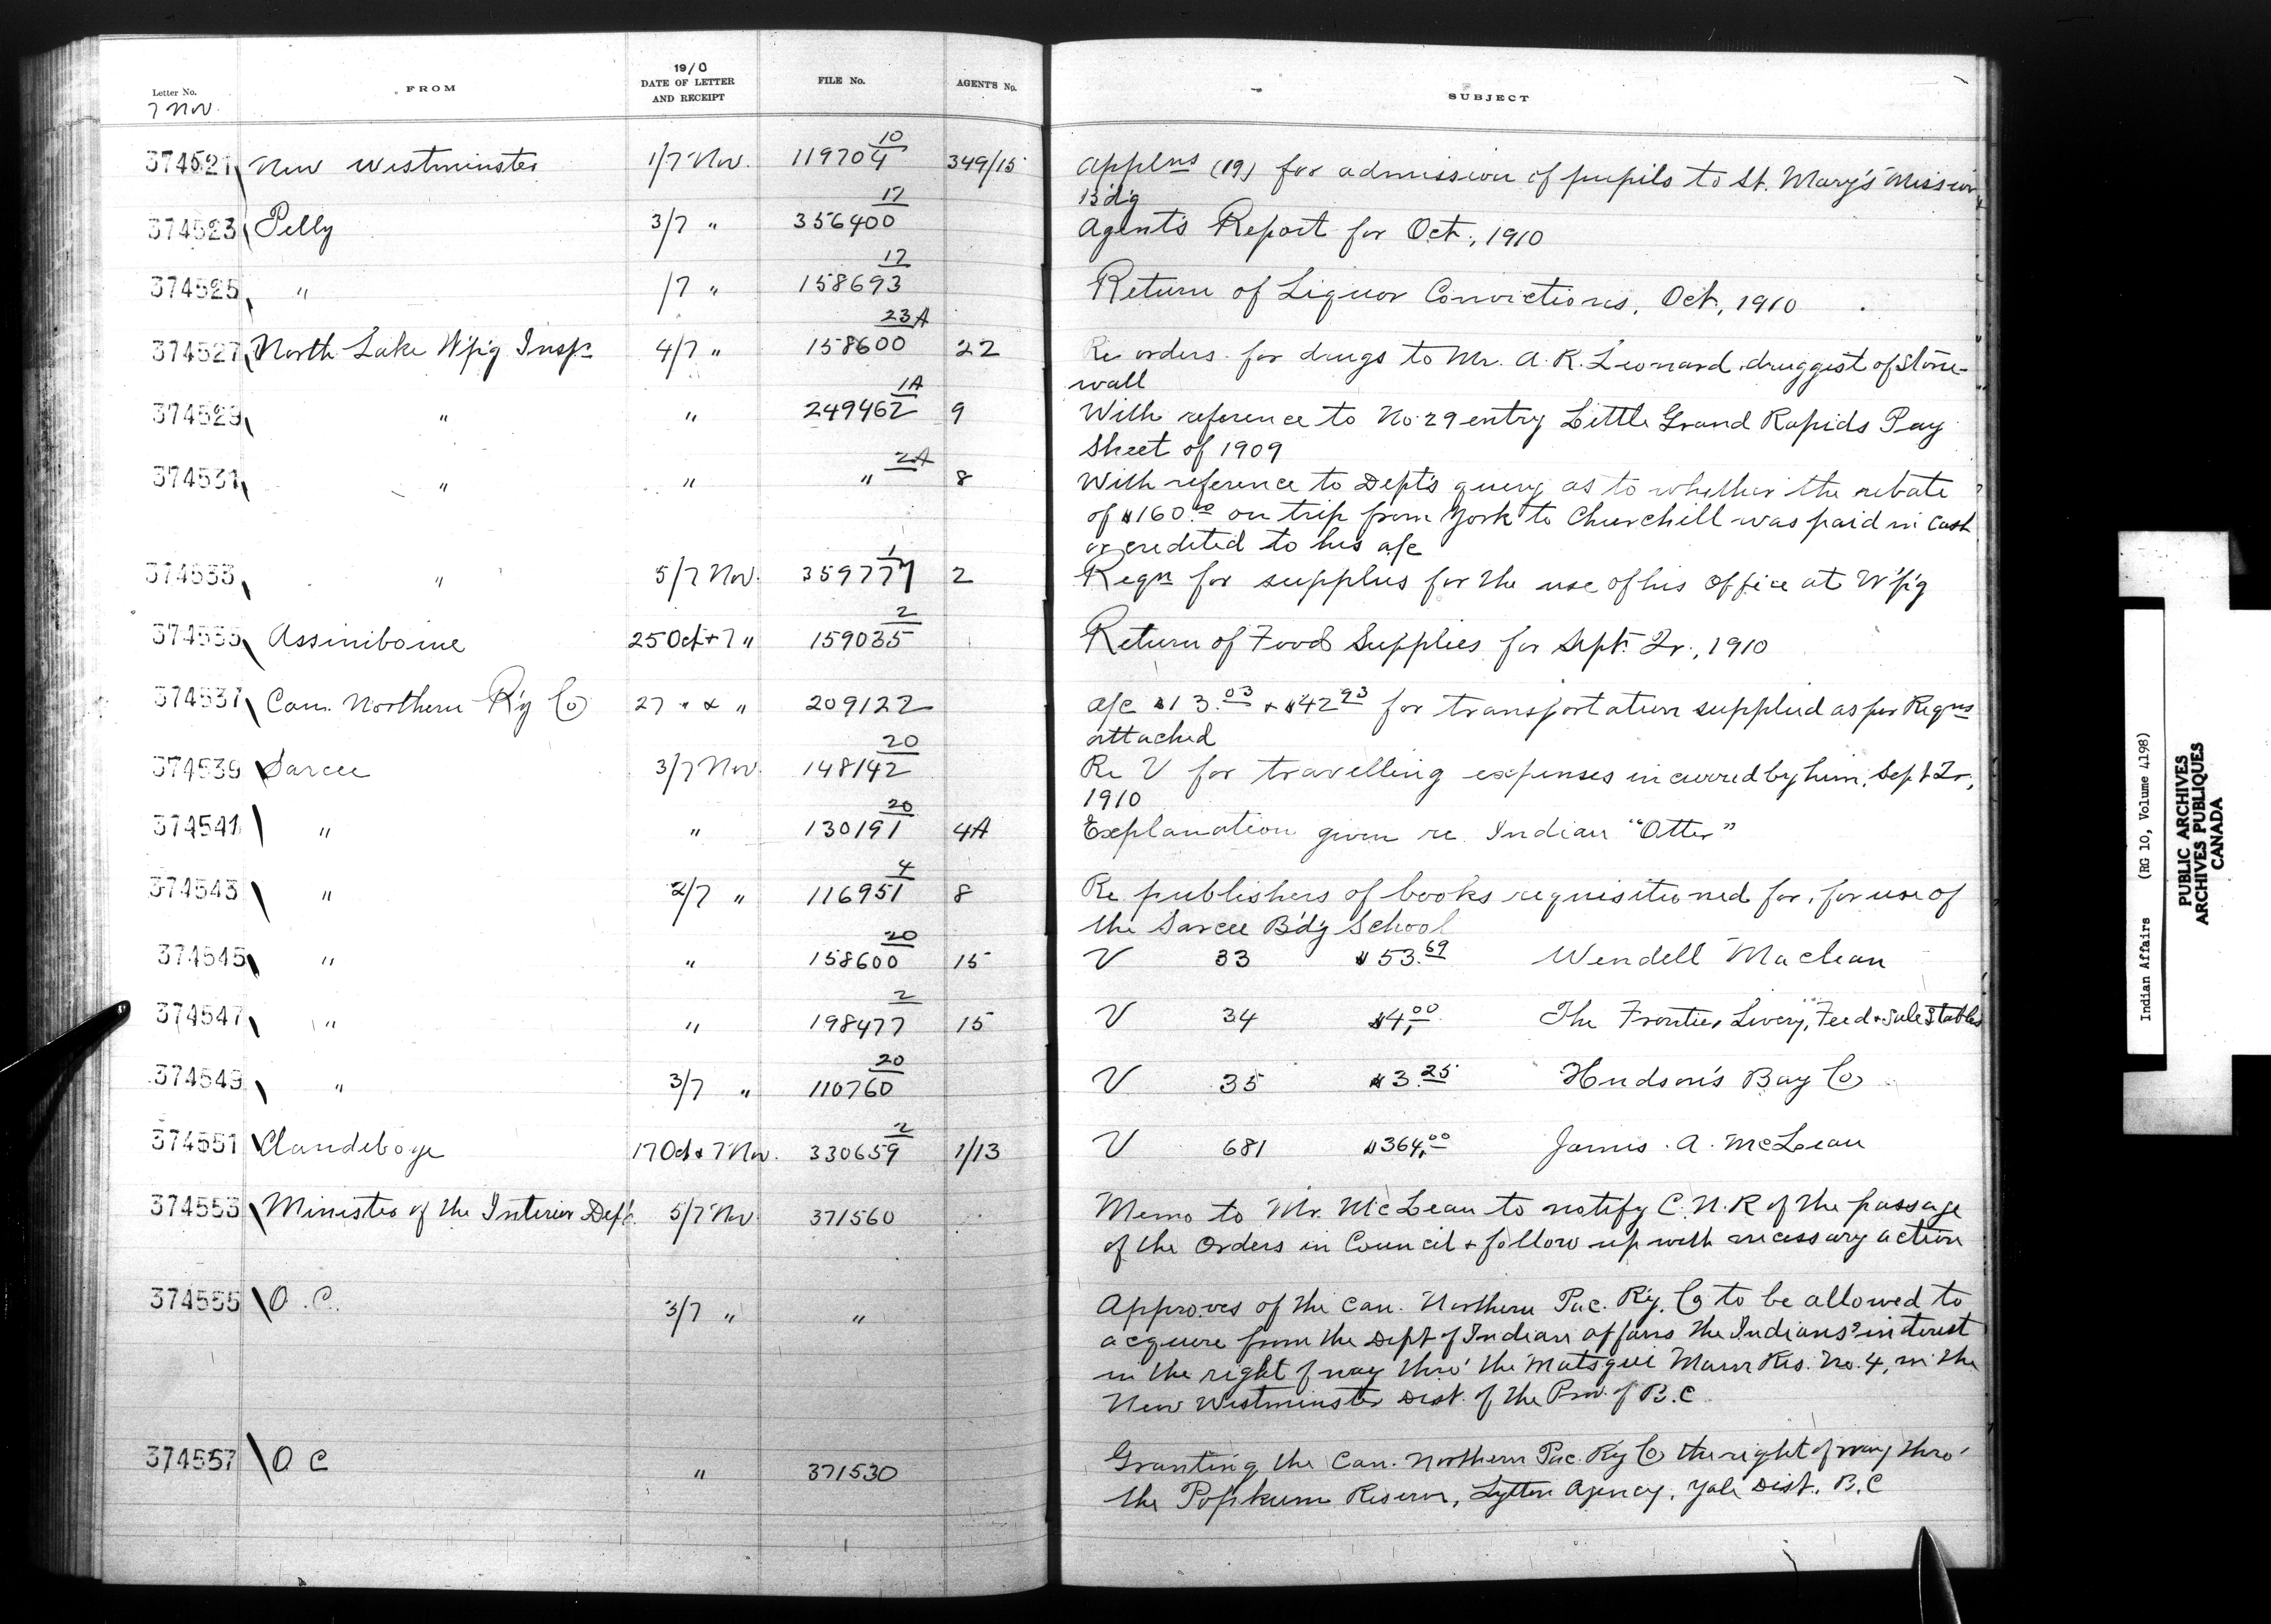 Letter No. FROM 1910 DATE OF LETTER AND RECEIPT FILE No. AGENT'S No. SUBJECT
7 Nov.
374521 New Westminster 1/7 Nov. 119704 10 349/15 Applns (19) for admission of pupils to St. Mary's Mission
Bd'g
374523 Pelly 3/7 " 356400 17 Agent's Report for Oct., 1910
374525 " /7 " 158693 17 Return of Liquor Convictions, Oct, 1910
374527 North Lake W'p'g Insp. 4/7 " 158600 23A 22 Re orders for drugs to Mr. A. R. Leonard druggist of Stone-
wall
374529 " " 249462 1A 9 With reference to No 29 entry Little Grand Rapids Pay
Sheet of 1909
374531 " " " 2A 8 With reference to Dept's query as to whether the rebate
of $160.00 on trip from York to Churchill was paid in cash
or credited to his a/c
374533 " 5/7 Nov. 359777 1 2 Reqn for supplies for the use of his office at W'p'g
374535 Assiniboine 25 Oct + 7 " 159035 2 Return of Food Supplies for Sept. Qr., 1910
374537 Can. Northern R'y Co 27 " & " 209122 a/c $13.03 + $42.93 for transportation supplied as per Reqns
attached
374539 Sarcee 3/7 Nov. 148142 20 Re V for travelling expenses incurred by him, Sept Qr,
1910
374541 " " 130191 20 4A Explanation given re Indian "Otter"
374543 " 2/7 " 116951 4 8 Re publishers of books requisitioned for, for use of
the Sarcee Bd'g School
374545 " " 158600 20 15 V 33 $53.69 Wendell Maclean
374547 " " 198477 2 15 V 34 $4.00 The Frontier Livery, Feed + Sale Stables
374549 " 3/7 " 110760 20 V 35 $3.25 Hudson's Bay Co
374551 Clandeboye 17 Oct & 7 Nov. 330659 2 1/13 V 681 $364.00 James A. McLean
374553 Minister of the Interior Dept. 5/7 Nov 371560 Memo to Mr. McLean to notify C.N.R of the passage
of the Orders in Council + follow up with necessary action
374555 O.C. 3/7 " " Approves of the Can. Northern Pac. Ry. Co to be allowed to
acquire from the Dept of Indian affairs the Indians' interest
in the right of way thro' the Matsqui Main Res. No. 4, in the
New Westminster Dist. of the Prov. of B.C.
374557 O C " 371530 Granting the Can. Northern Pac. Ry Co the right of way thro'
the Popkum Reserve, Lytton Agency, Yale Dist., B.C
Indian Affairs (RG 10, Volume 4198)
PUBLIC ARCHIVES
ARCHIVES PUBLIQUES
CANADA